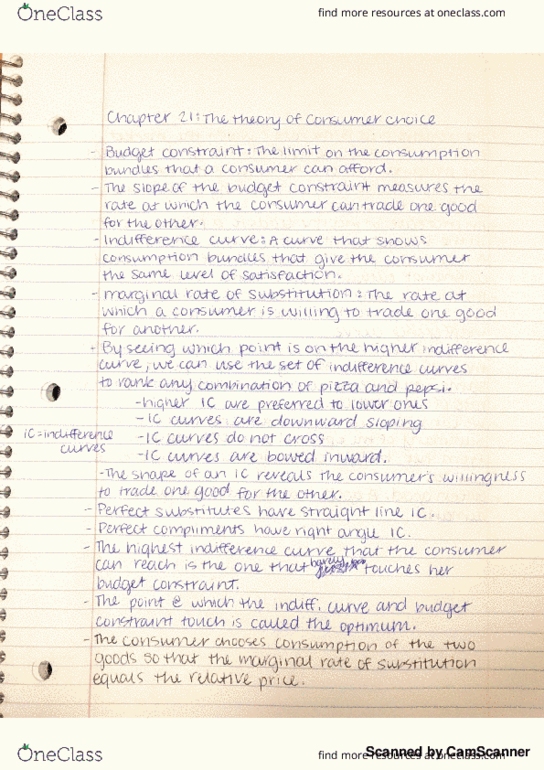 OneClass
find more resources at oneclass.com
Chapter 21: The theory of consumer choice
- Budget constraint: The limit on the consumption
bundles that a consumer can afford.
- The slope of the budget constraint measures the
rate at which the consumer can trade one good
for the other.
- Indifference curve: A curve that shows
consumption bundles that give the consumer
the same level of satisfaction.
- marginal rate of substitution: The rate at
which a consumer is willing to trade one good
for another.
- By seeing which point is on the higher indifference
curve, we can use the set of indifference curves
to rank any combination of pizza and pepsi.
-higher IC are preferred to lower ones
-IC curves are downward sloping
-IC curves do not cross
-IC curves are bowed inward.
IC=indifference
curves
-The shape of an IC reveals the consumer's willingness
to trade one good for the other.
- Perfect substitutes have straight line IC.
- Perfect compliments have right angle IC.
- The highest indifference curve that the consumer
can reach is the one that barely touches her
budget constraint.
- The point @ which the indiff. curve and budget
constraint touch is called the optimum.
- The consumer chooses consumption of the two
goods so that the marginal rate of substitution
equals the relative price.
OneClass
find more resources at oneclass.com
Scanned by CamScanner